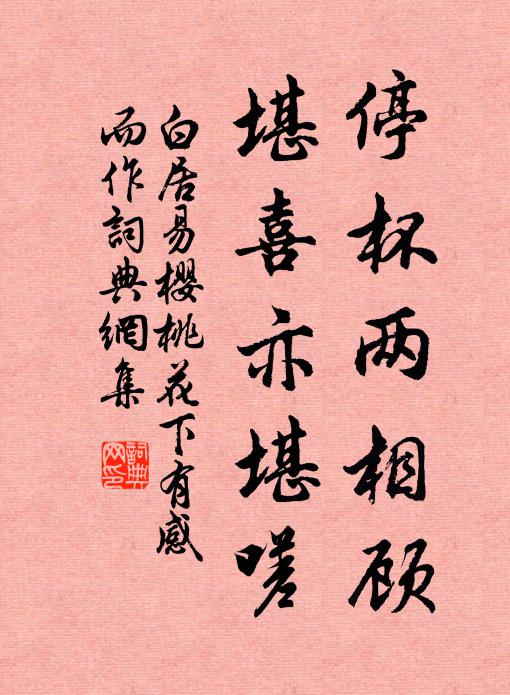 停杯两相顾
堪喜亦堪嗟
白居易樱桃花下有感
而作詞典網集
詞典网印